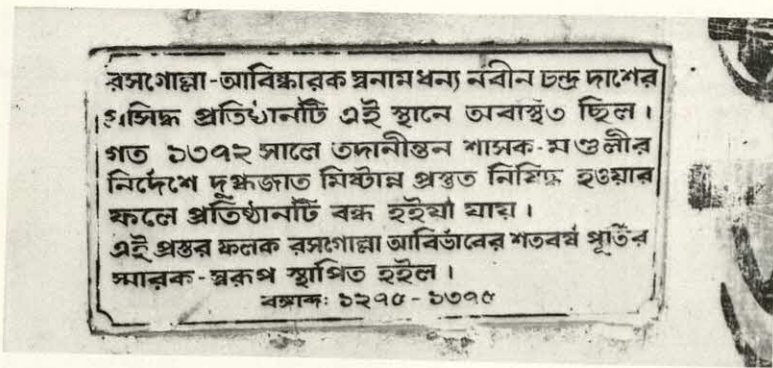 রসগোল্লা-আবিষ্কারক স্বনামধন্য নবীন চন্দ্র দাশের
প্রসিদ্ধ প্রতিষ্ঠানটি এই স্থানে অবস্থিত ছিল।
গত ১৩৭২ সালে তদানীন্তন শাসক-মণ্ডলীর
নির্দেশে দুগ্ধজাত মিষ্টান্ন প্রস্তুত নিষিদ্ধ হওয়ার
ফলে প্রতিষ্ঠানটি বন্ধ হইয়া যায়।
এই প্রস্তর ফলক রসগোল্লা আবির্ভাবের শতবর্ষ পূর্তির
স্মারক-স্বরূপ স্থাপিত হইল।
বঙ্গাব্দ: ১২৭৫ - ১৩৭৫